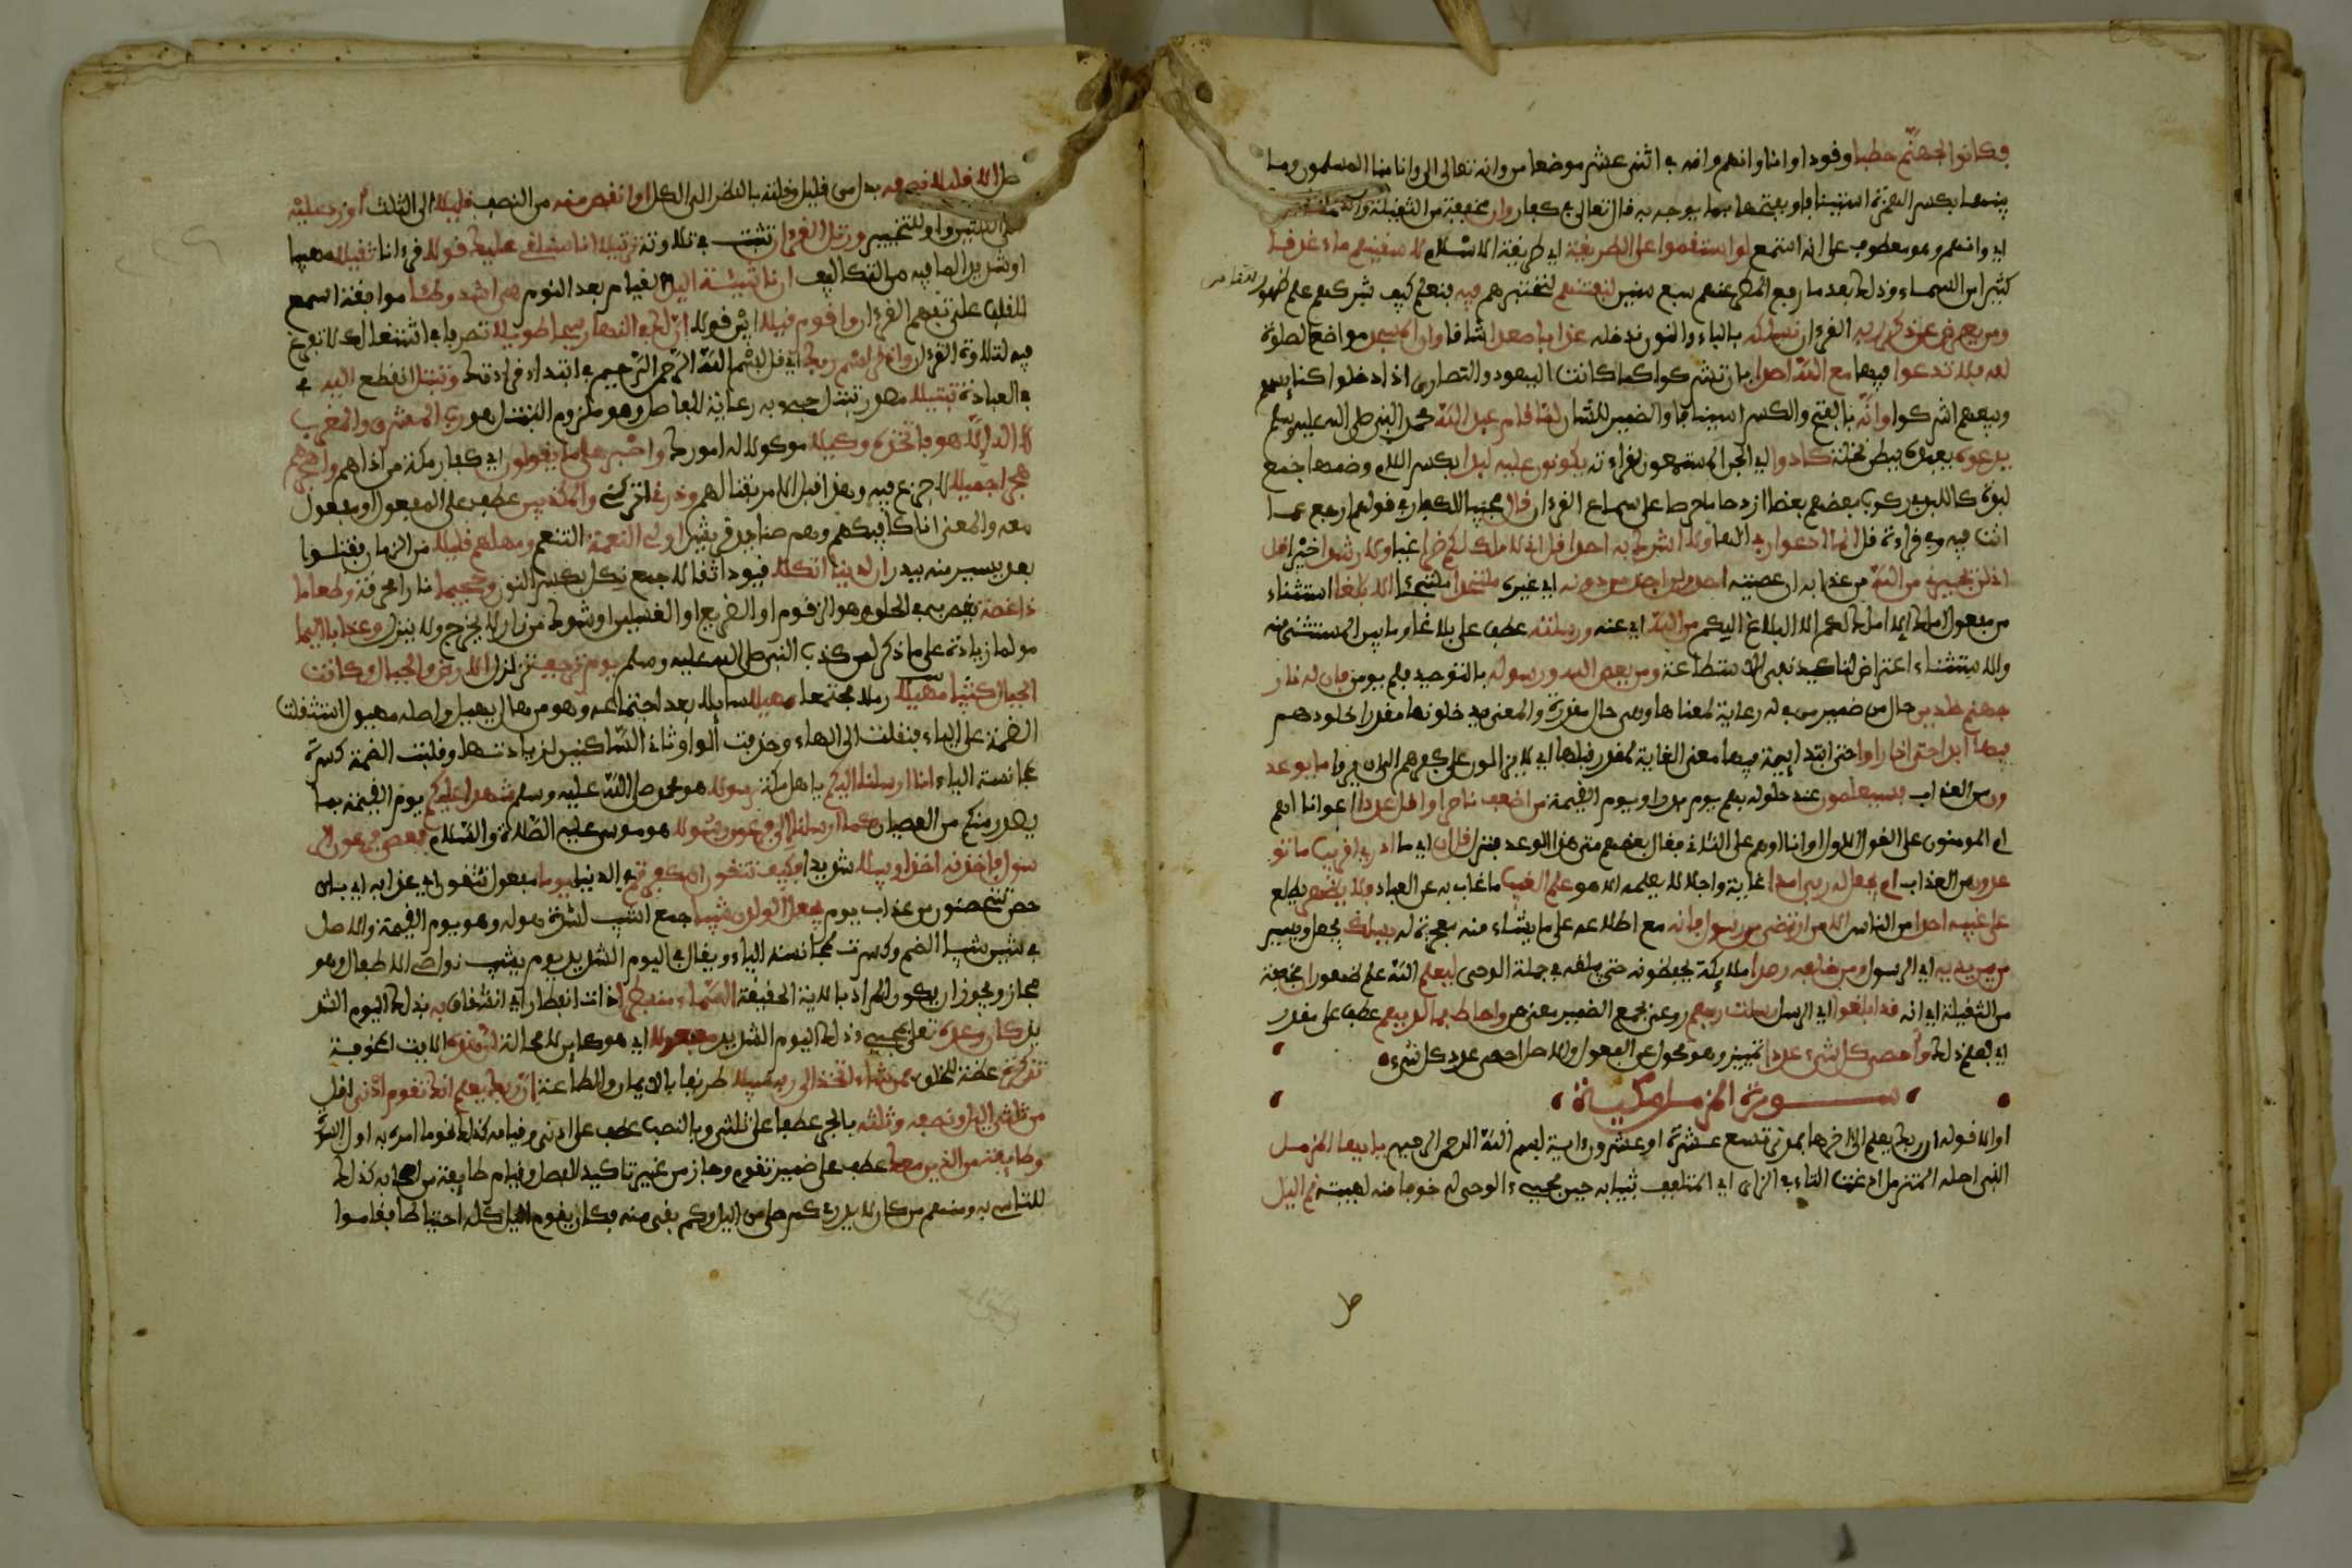 فكانوا لجهنم حطبا وقودا وانا وانهم وانه في اثنى عشر موضعا من وانه تعالى الى وانا منا المسلمون وما
بينهما بكسر الهمزة استينافا وبفتحها بما يوجه به قال تعالى في كفار وان مخففة من الثقيلة واسمها
اي وانهم وهو معطوف على انه استمع لو استقموا على الطريقة اي طريقة الاسلام لاسقينهم ماء غدقا
كثيرا من السماء وذلك بعد ما رفع المطر عنهم سبع سنين لنفتنهم لنختبرهم فيه فنعلم كيف شكرهم علم ظهور
ومن يعرض عن ذكر ربه القرءان نسلكه بالياء والنون ندخله عذابا صعدا شاقا وان المسجد مواضع الصلوة
لله فلا تدعوا فيها مع الله احدا بان تشركوا كما كانت اليهود والنصارى اذا دخلوا كنايسهم
وبيعهم اشركوا وانه بالفتح والكسر استينافا والضمير للشان لما قام عبد الله محمد النبي صلى الله عليه وسلم
يدعوه يعبده ببطن نخلة كادوا اي الجن المستمعون لقراءته يكونون عليه لبدا بكسر اللام وضمها جمع
لبدة كاللبد في ركوب بعضهم بعضا ازدحاما حرصا على سماع القرءان قال مجيبا للكفار في قولهم ارجع عما
انت فيه وفي قراءة قل انما ادعوا ربي الها ولا اشرك به احدا قل اني لا املك لكم ضرا غيا ولا رشدا خيرا قل
اني لن يجيرني من الله من عذابه ان عصيته احد ولن اجد من دونه اي غيره ملتحدا ملتجئا الا بلغا استثناء
من مفعول املك اي لا املك لكم الا البلاغ اليكم من الله اي عنه ورسلته عطف على بلاغا وما بين المستثنى منه
والاستثناء اعتراض لتاكيد نفي الاستطاعة ومن يعص الله ورسوله بالتوحيد فلم يومن فان له نار
جهنم خلدين حال من ضمير من في له رعاية لمعناها وهي حال مقدرة والمعنى يدخلونها مقدرا خلودهم
فيها ابدا حتى اذا راوا حتى ابتدايية فيها معنى الغاية لمقدر قبلها اي لا يزالون على كفرهم الى ان يروا ما يوعد
ون من العذاب فسيعلمون عند حلوله بهم يوم بدر او يوم القيمة من اضعف ناصرا واقل عددا اعوانا اهم
ام المومنون على القول الاول او انا ام هم على الثاني فقال بعضهم متى هذا الوعد فنزل قل ان اي ما ادري اقريب ما تو
عدون من العذاب ام يجعل له ربي امدا غاية واجلا لا يعلمه الا هو علم الغيب ما غاب به عن العباد فلا يظهر يطلع
على غيبه احدا من الناس الا من ارتضى من رسول فانه مع اطلاعه على ما يشاء منه معجزة له يسلك يجعل ويسير
من بين يديه اي الرسول ومن خلفه رصدا ملايكة يحفظونه حتى يبلغه في جملة الوحى ليعلم الله علم ظهور ان مخففة
من الثقيلة اي انه قد ابلغوا اي الرسل رسلت ربهم روعى بجمع الضمير معنى من واحاط بما لديهم عطف على مقدر
اي فعلم ذلك واحصى كل شىء عددا تمييز وهو محول عن المفعول والاصل احصى عدد كل شىء
سورة المزمل مكية
او الا قوله ان ربك يعلم الى اخرها فمدني تسع عشرة او عشرون ءاية بسم الله الرحمن الرحيم يايها المزمل
النبي اصله المتزمل ادغمت التاء في الزاي اي المتلفف بثيابه حين مجيء الوحى له خوفا منه لهيبته قم اليل
صل الا قليلا نصفه بدل من قليل وقلته بالنظر الى الكل او انقص منه من النصف قليلا الى الثلث او زد عليه
الى الثلثين واو للتخيير ورتل القرءان تثبت في تلاوته ترتيلا انا سنلقى عليك قولا قرءانا ثقيلا مهيبا
او شديدا لما فيه من التكاليف ان ناشية اليل القيام بعد النوم هي اشد وطئا موافقة السمع
للقلب على تفهم القرءان واقوم قيلا ابين قولا ان لك في النهار سبحا طويلا تصرفا في اشتغالك لا تفرغ
فيه لتلاوة القرءان واذكر اسم ربك اي قل بسم الله الرحمن الرحيم في ابتداء قراءتك وتبتل انقطع اليه في
في العبادة تبتيلا مصدر بتل جيء به رعاية للفواصل وهو ملزوم التبتل هو رب المشرق والمغرب
لا اله الا هو فاتخذه وكيلا موكولا له امورك واصبر على ما يقولون اي كفار مكة من اذاهم واهجرهم
هجرا جميلا لا جزع فيه وهذا قبل الامر بقتالهم وذرنى اتركنى والمكذبين عطف على المفعول او مفعول
معه والمعنى انا كافيكهم وهم صناديد قريش اولى النعمة التنعم ومهلهم قليلا من الزمان فقتلوا
بعد يسير منه ببدر ان لدينا انكالا قيودا ثقالا جمع نكل بكسر النون وجحيما نارا محرقة وطعاما
ذا غصة يغص به في الحلق وهو الزقوم او الضريع او الغسلين او شوك من نار لا يخرج ولا ينزل وعذابا اليما
مولما زيادة على ما ذكر لمن كذب النبي صلى الله عليه وسلم يوم ترجف تزلزل الارض والجبال وكانت
الجبال كثيبا مهيلا رملا مجتمعا مهيلا سايلا بعد اجتماعه وهو من هال يهيل واصله مهيول استثقلت
الضمة على الياء فنقلت الى الهاء وحذفت الواو ثاني الساكنين لزيادتها وقلبت الضمة كسرة
لمجانسة الياء انا ارسلنا اليكم يا هل مكة رسولا هو محمد صلى الله عليه وسلم شهدا عليكم يوم القيمة بما
يصدر منكم من العصيان كما ارسلنا الى فرعون رسولا هو موسى عليه الصلاة والسلام فعصى فرعون الر
سول فاخذنه اخذا وبيلا شديدا فكيف تتقون ان كفرتم في الدنيا يوما مفعول تتقون اي عذابه اي باى
حصن تتحصنون من عذاب يوم يجعل الولدن شيبا جمع اشيب لشدة هوله وهو يوم القيمة والاصل
في شين شيبا الضم وكسرت لمجانسة الياء ويقال في اليوم الشديد يوم يشيب نواصى الاطفال وهو
مجاز ويجوز ان يكون المراد بالاية الحقيقة السماء منفطر ذات انفطار اي انشقاق به بذلك اليوم الشد
يد كان وعده تعلى بمجيء ذلك اليوم الشديد مفعولا اي هو كاين لا محالة ان هذه الايت المخوفة
تذكرة عظة للخلق فمن شاء اتخذ الى ربه سبيلا طريقا بالايمان والطاعة ان ربك يعلم انك تقوم ادنى اقل
من ثلثى اليل ونصفه وثلثه بالجر عطف على ثلثى وبالنصب عطف على ادنى وقيامه كذلك نحو ما امر به اول السورة
وطايفة من الذين معك عطف على ضمير تقوم وجاز من غير تاكيد للفصل وقيام طايفة من اصحابه كذلك
للتاسى به ومنهم من كان لا يدرى كم صلى من اليل وكم بقى منه فكان يقوم اليل كله احتياطا فقاموا